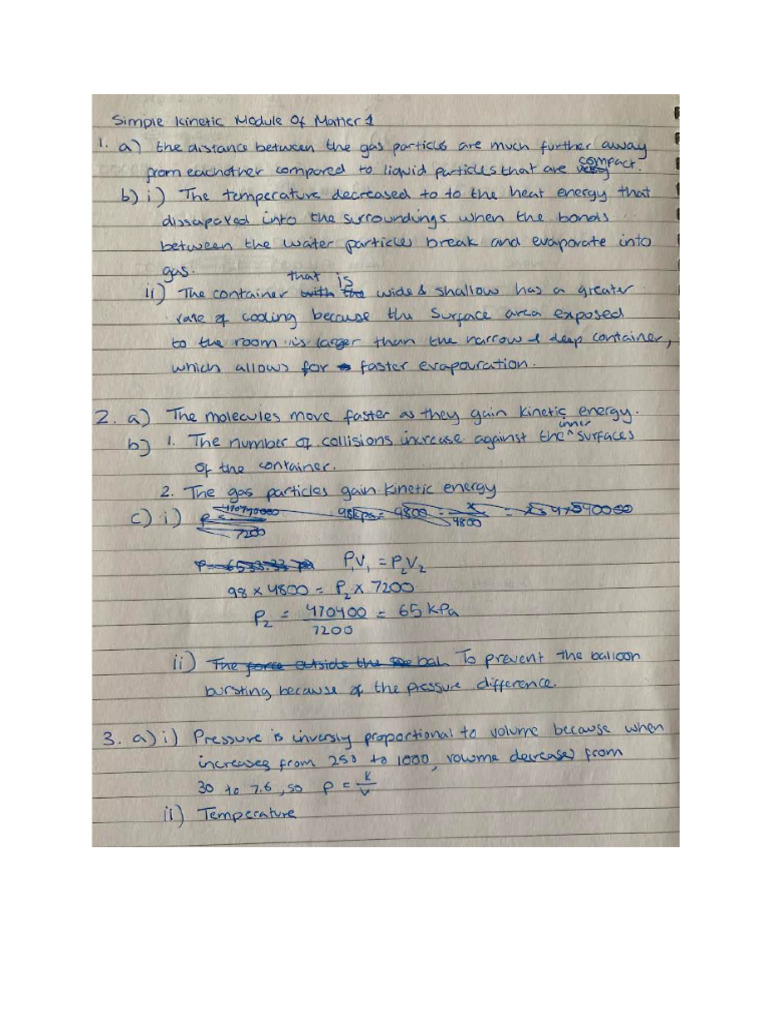 Simple Kinetic Module Of Matter 1
1. a) the distance between the gas particles are much further away
from eachother compared to liquid particles that are compact.
b) i) The temperature decreased to to the heat energy that
dissapated into the surroundings when the bonds
between the water particles break and evaporate into
gas.
ii) The container that is wide & shallow has a greater
rate of cooling because the surface area exposed
to the room is larger than the narrow & deep container,
which allows for faster evapouration.
2. a) The molecules move faster as they gain kinetic energy.
b) 1. The number of collisions increase against the inner surfaces
of the container.
2. The gas particles gain kinetic energy
c) i)
7200
4800
P₁V₁ = P₂V₂
98 x 4800 = P₂ x 7200
P₂ = 470400 = 65 kPa
7200
ii) The force outside the bal To prevent the balloon
bursting because of the pressure difference.
3. a) i) Pressure is inversly proportional to volume because when
increases from 250 to 1000, volume decreases from
30 to 7.6, so P = K/V
ii) Temperature